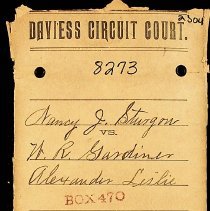 2504
DAVIESS CIRCUIT COURT.
8273
Nancy J. Sturgon
VS.
W. R. Gardiner
Alexander Leslie
BOX 470